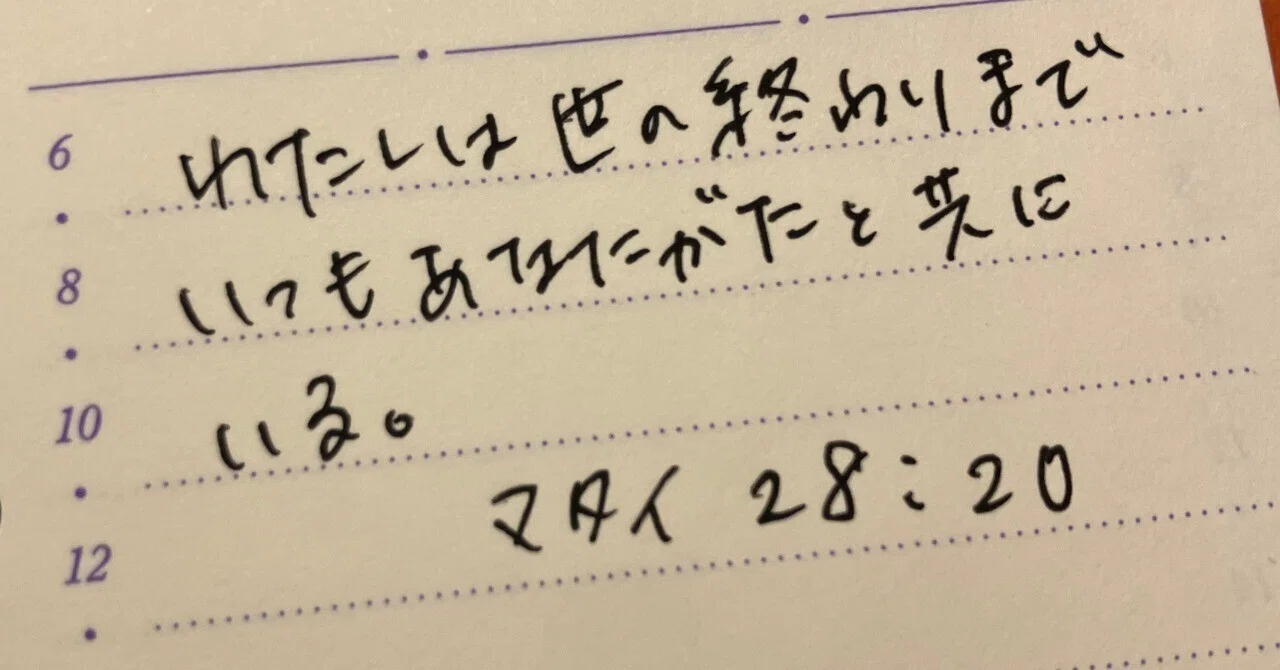 6 わたしは世の終わりまで
8 いつもあなたがたと共に
10 いる。
マタイ 28:20
12